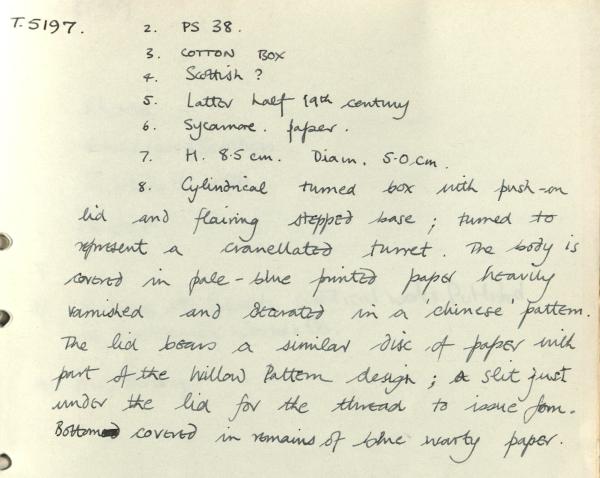 T.5197. 2. PS 38.
3. COTTON BOX
4. Scottish ?
5. Latter half 19th century
6. Sycamore. paper.
7. H. 8.5 cm. Diam. 5.0 cm.
8. Cylindrical turned box with push-on
lid and flairing stepped base ; turned to
represent a cranellated turret. The body is
covered in pale-blue printed paper heavily
varnished and decorated in a 'chinese' pattern.
The lid bears a similar disc of paper with
part of the Willow Pattern design ; a slit just
under the lid for the thread to issue from.
Bottom covered in remains of blue warty paper.